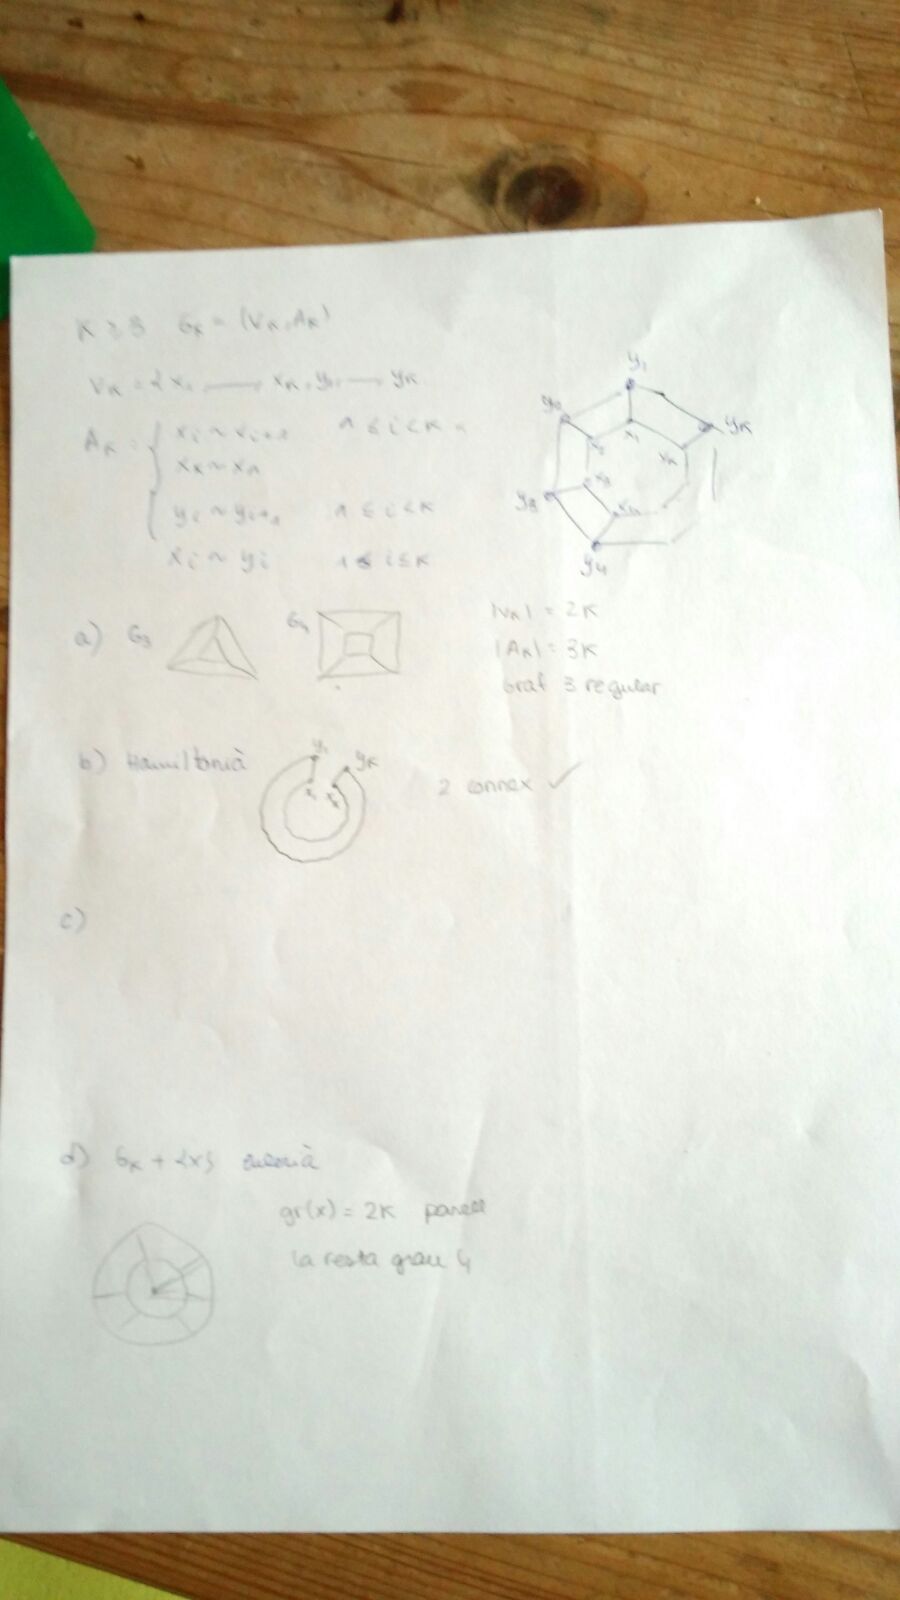 K ≥ 3 G_K = (V_K, A_K)
V_K = {x_1, —— x_K, y_1, — y_K
A_K = { x_i ~ x_{i+1} 1 ≤ i < K
x_K ~ x_1
y_i ~ y_{i+1} 1 ≤ i < K
x_i ~ y_i 1 ≤ i ≤ K
y_1
y_2
y_K
x_1
x_2
x_K
x_3
y_3
x_4
y_4
a) G_3 G_4
|V_K| = 2K
|A_K| = 3K
Graf 3 regular
b) Hamiltonià
y_1
y_K
x_1
x_K
2 connex ✓
c)
d) G_K + {x} eulerià
gr(x) = 2K parell
la resta grau 4